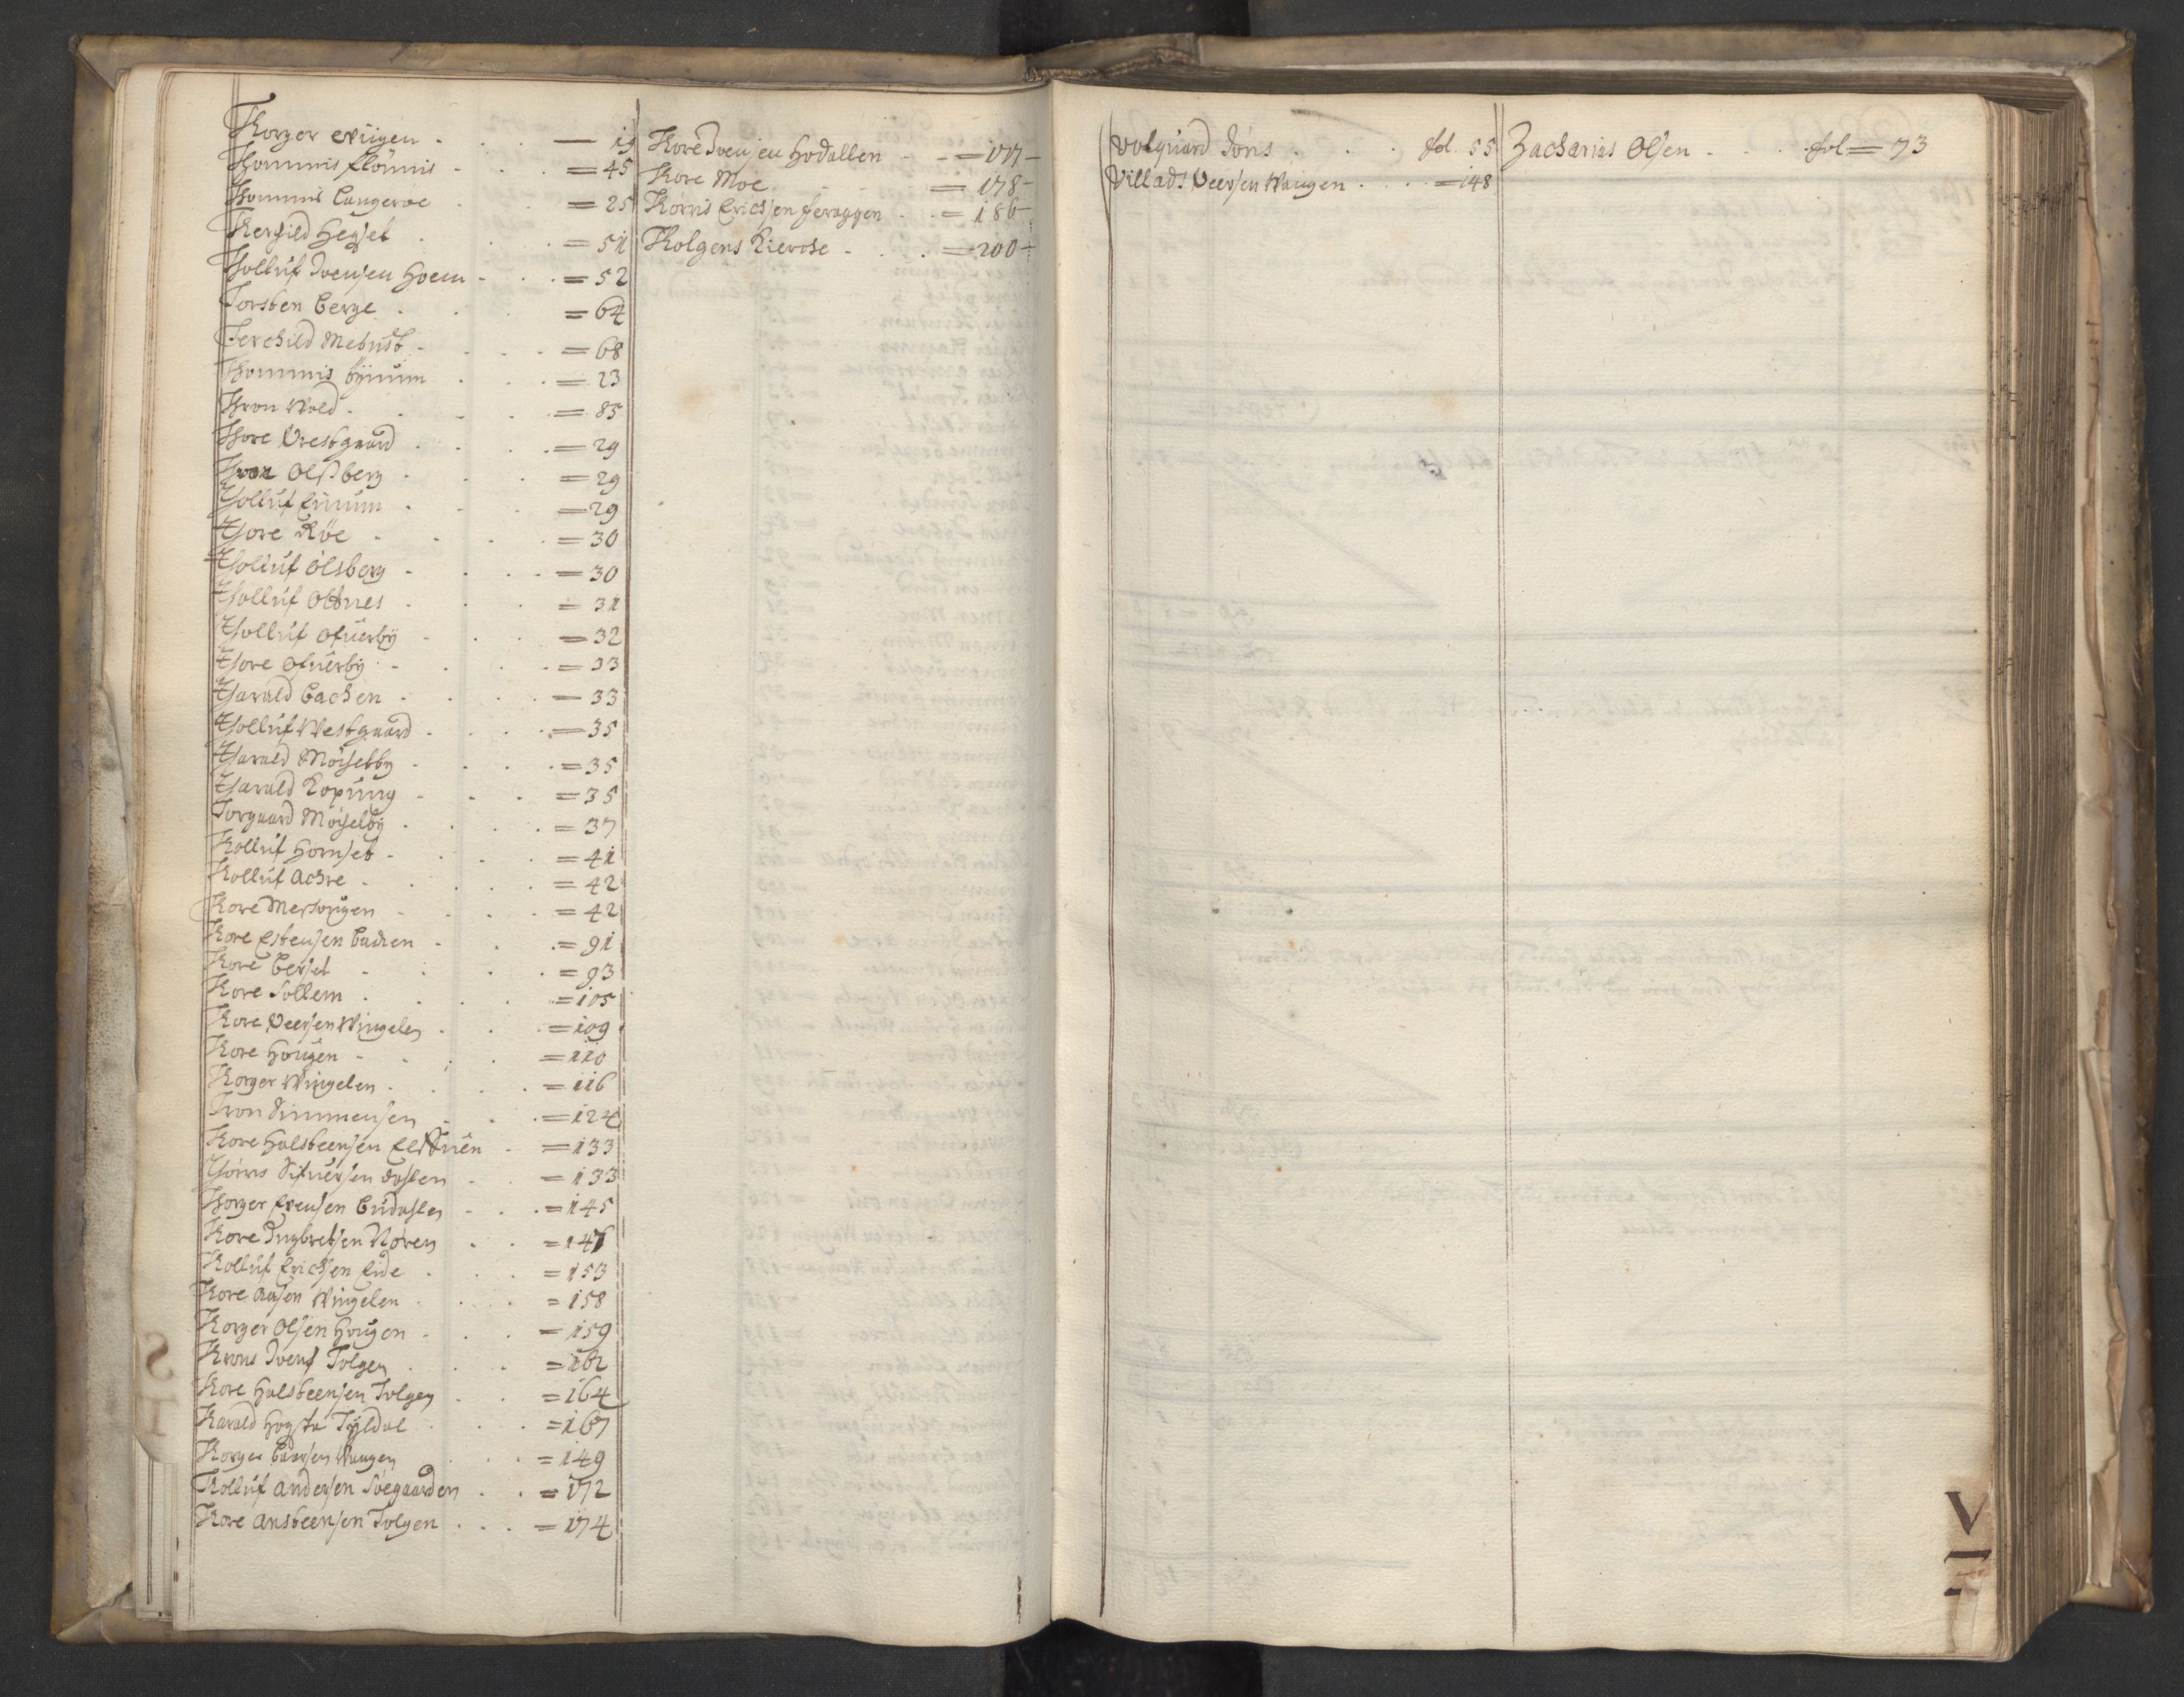 Thorger Wiigen — 19
Thommis flönnis = 45
Thommis Langeroe = 25
Therchild Hegset = 51
Tholluf Ivensen Hoem = 52
Torsten Berge = 64
Terchild Mebust = 68
Thommis Öÿnum = 23
Thron Wold = 85
Thore Vrestgaard = 29
Olsberg = 29
Tholluf Einum = 29
Thore Röe = 30
Tholluf Olsberg = 30
Tholluf Ottnes = 31
Tholluf Ofuerbÿ = 32
Thore Ofuerbÿ = 33
Tharald Bachen = 33
Tholluf Westgaard = 35
Tharald Möseby = 35
Tharald Kopung = 35
Torgaard Möiselbÿ = 37
Tholluf Hornset = 41
Tholluf Achre = 42
Thore = 42
Thore Estensen Bachen = 91
Thore Berset = 93
Thore Sollem = 105
Thore Peersen Wingelen = 109
Thore Hougen = 110
Thorger Wingelen = 116
Tron Simmensen = 124
Thore Halsteensen = 133
Thorris Sifuersen dahlen = 133
Thorger Evensen Budahlen = 145
Thore Ingbretsen Noren = 147
Tholluf Erichsen Eide = 153
Thore Aasen Wingelen = 158
Thorger Olsen Hougen = 159
Throns Ivens Tolgen = 162
Thore Halsteensen Tolgen = 164
Tharald Tÿldal = 167
Thorger Wangen = 149
Tholluf Andersen Svegaarden = 172
Thore Ansteensen Tolgen = 174
Thore Ivensen Hodallen = 177
Thore Moe = 178
Thorris Erichsen feraggen = 186
Tholgens Kierche = 200
Volquard Jöns fol. 55
Villads Peersen Wangen = 148
Zacharias Olsen fol = 73
ST
V